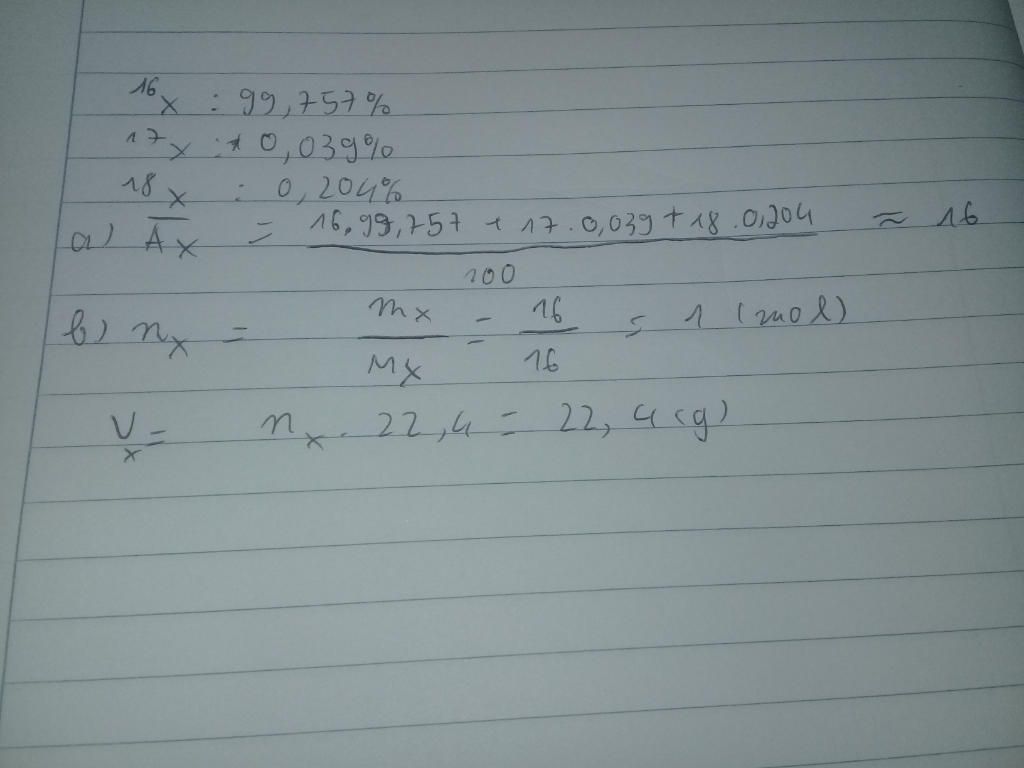 ¹⁶X : 99,757%
¹⁷X : 0,039%
¹⁸X : 0,204%
a) A̅x = (16.99,757 + 17.0,039 + 18.0,204)/100 ≈ 16
b) nx = mx/Mx = 16/16 = 1 (mol)
Vx = nx. 22,4 = 22,4 (g)